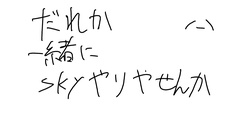 だれか (-_-)
一緒に
skyやりやせんか